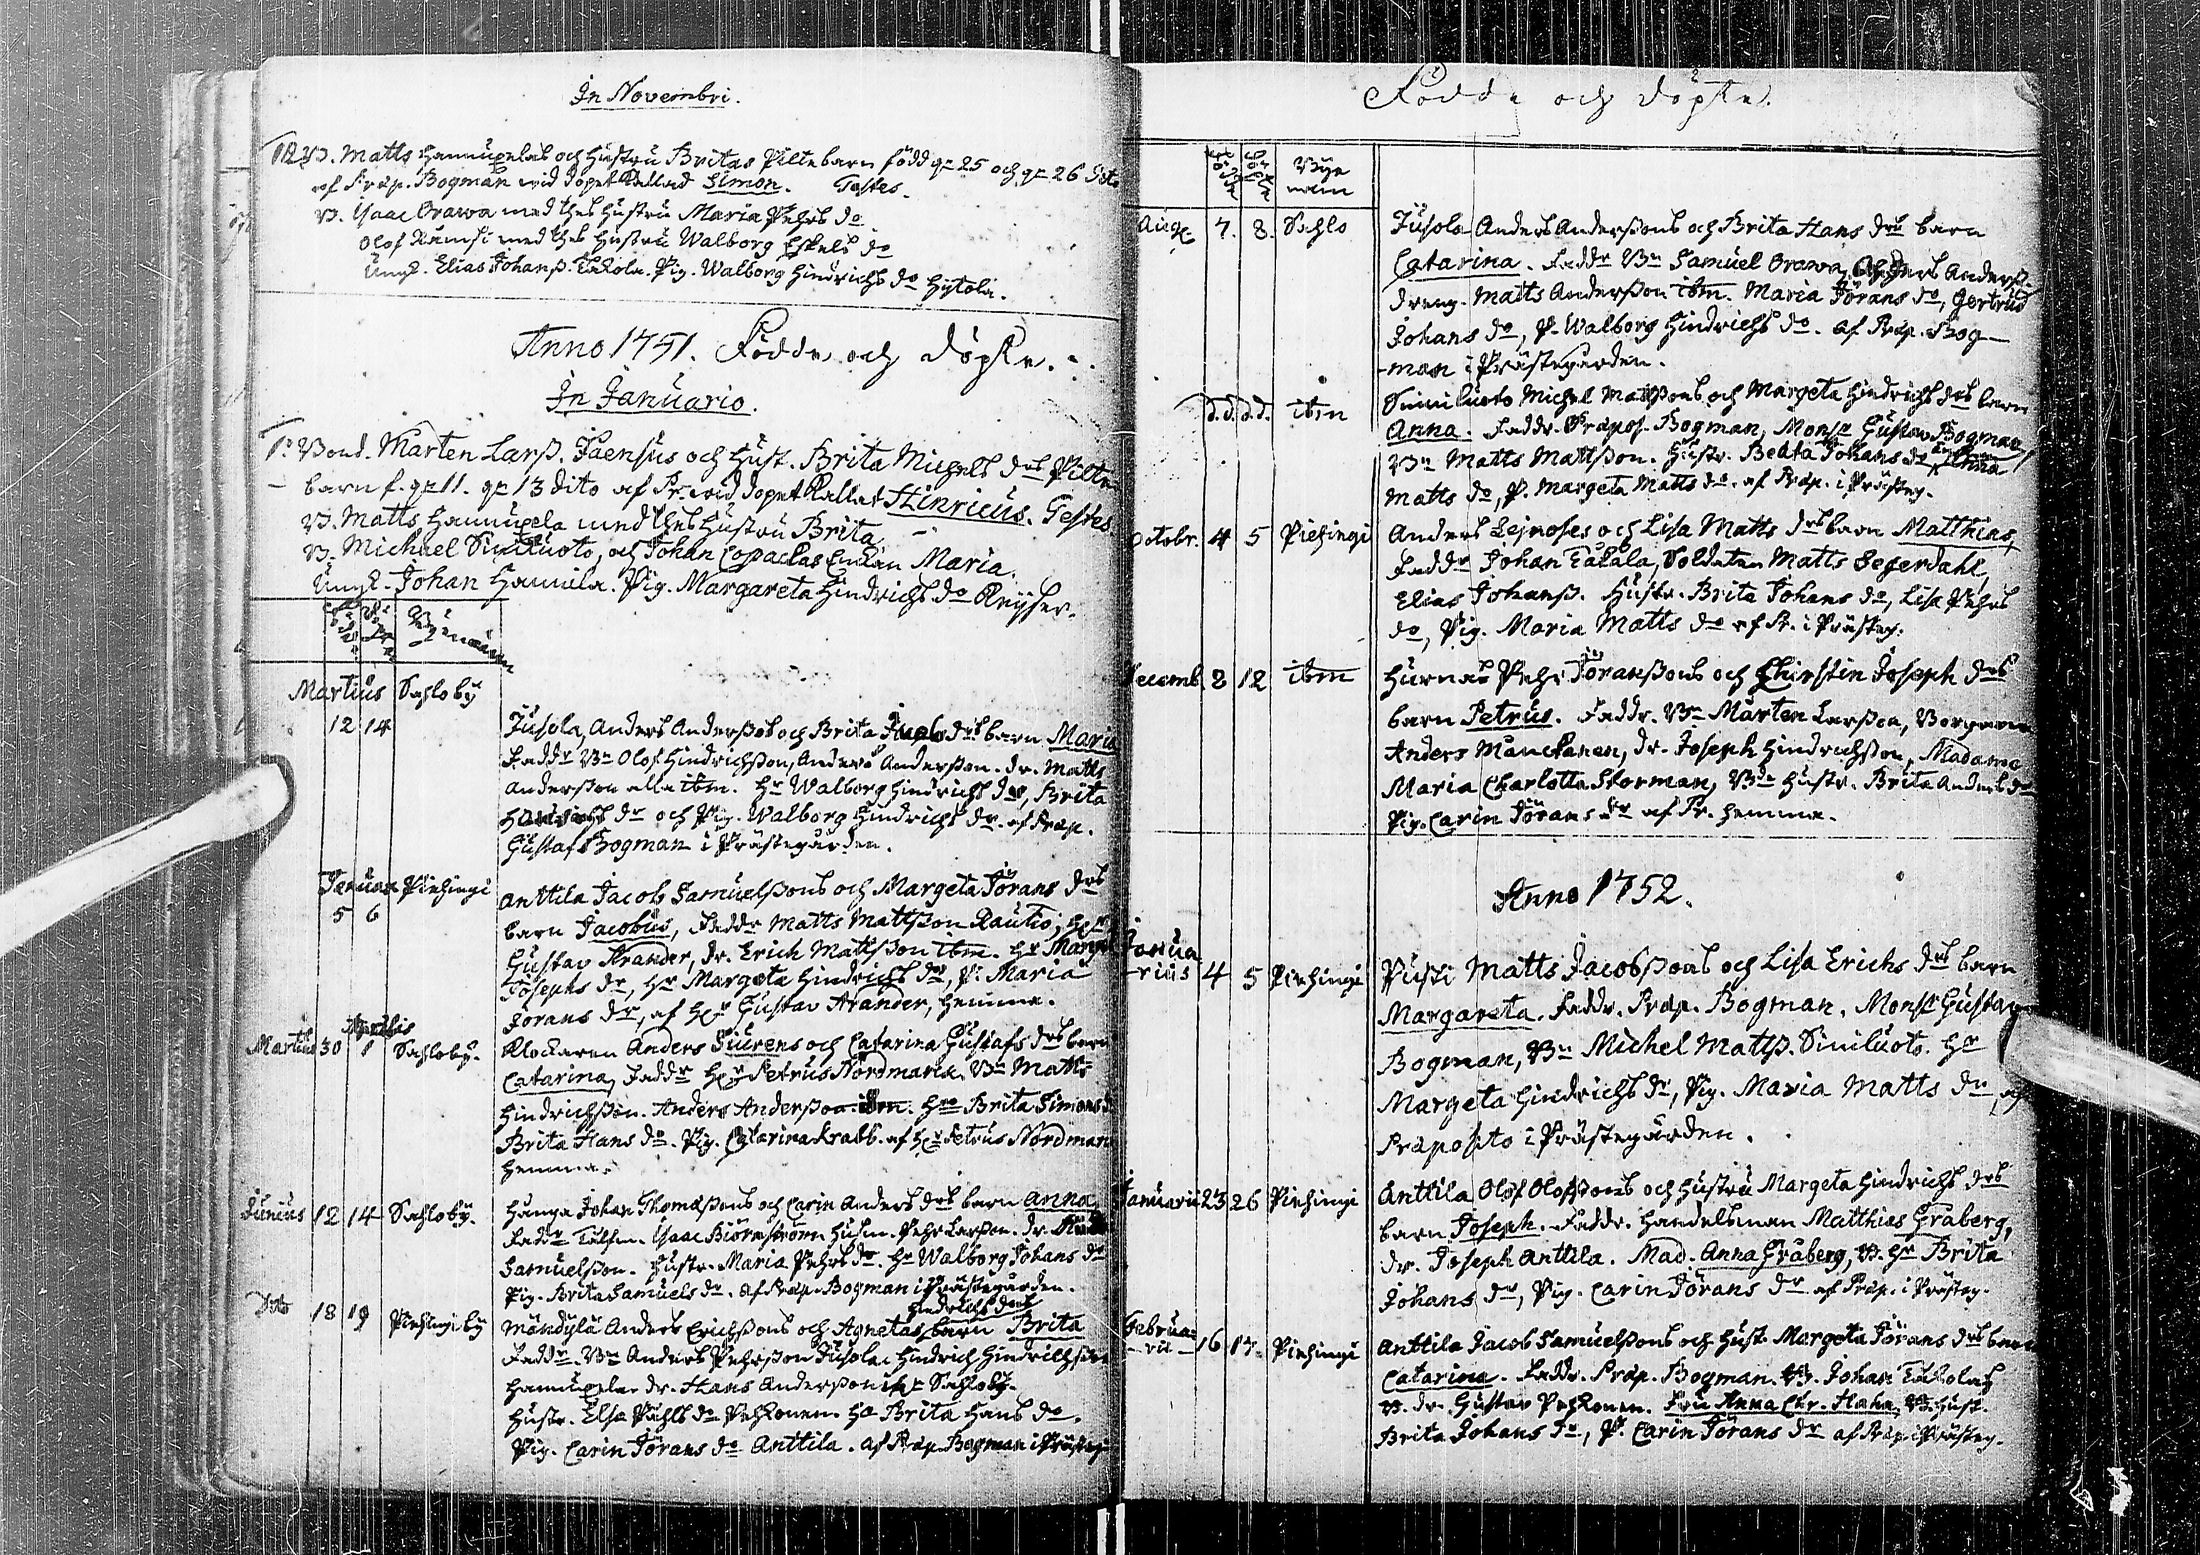 In Novembri.
B. Matts Hannupelas och Hustru Britas Piltebarn född d. 25 och d. 26 dito
af Præp. Bogman wid dopet kallad Simon. Testes.
B. Isaac Orawa med thes Hustru Maria Pehrs dr
Olof Rämsi med thes Hustru Walborg Eskels dr
Ungk. Elias Johanß. Takola. Pig. Walborg Hindrichs dr Hytola.
Anno 1751. Födde och döpte.
In Januario.
Bond. Mårten Larß. Jaensus och Hust. Brita Michels drs Pilte
barn f. d. 11. d. 13 dito af Pr. wid dopet kallat Hinricus. Testes
B. Matts Hannupela med thes Hustru Brita
B. Michael Siniluoto, och Johan Enkan Maria.
Ungk. Johan Hannila. Pig. Margareta Hindrichs dr Keyser.
Byenamn
Martius Sahloby
12 14
Jusola, Anders Anderßos och Brita drs barn Maria
Faddr Bn Olof Hindrichßon, Anders Anderßon. dr. Matts
Anderßon alla ibm. Hr Walborg Hindrichs dr, Brita
dr och Pig. Walborg Hindrichs dr. af Præp.
Gustaf Bogman i Prästegården.
Januar Piehingi
5 6
Anttila Jacob Samuelßons och Margeta Jörans drs
barn Jacobus, Faddr Matts Mattßon Rautio, Hr
Gustav Arander, dr. Erich Mattßon ibm. Hr Marget
Josephs dr, Hr Margeta Hindrichs dr, P. Maria
Jörans dr, af Hr Gustav Arander, hemma.
Aprilis
Martius 30 1 Sahloby.
Klockaren Anders Siurens och Catarina Gustafs drs barn
Catarina, Faddr Hr Petrus Nordman Bn Matts
Hindrichßon. Anders Anderßon ibm. Hr Brita Simons
Brita Hans dr. Pig. Catarina Krabb. af Hr Petrus Nordman
hemma.
Junius 12 14 Sahloby.
Hanga Johan Thomaßons och Carin Anders drs barn Anna
Faddr Isaac Biörnström Husm. Pehr Larßon. dr.
Samuelßon. Hustr. Maria Pehrs dr. Hr Walborg Johans dr
Pig. Brita Samuels dr. af Præp. Bogman i Prästegården.
Hindrichs drs
Dito 18 19 Piehingi by
Mändylä Anders Erichßons och Agnetas barn Brita
Faddr. Bn Anders Pehrßon Jusola Hindrich Hindrichßon
Hannupela dr. Hans Anderßon Sahloby.
Hustr. Elsa Påhls dr Pehkonen. Hr Brita Hans dr.
Pig. Carin Jörans dr Anttila. af Præp. Bogman i Prästeg
Födde och döpte.
Bye namn
Aug. 7. 8. Sahlo
Jusola Anders Anderßons och Brita Hans drs barn
Catarina. Faddr Bn Samuel Orawa, Anders Anderß.
dreng. Matts Anderßon ibm. Maria Jörans dr, Gertrud
Johans dr, P. Walborg Hindrichs dr. af Præp. Bog-
-man i Prästegården.
d.d. d.d. ibm
Siniluoto Michel Mattßons och Margeta Hindrichs drs barn
Anna. Faddr. Præpos. Bogman, Monsr Gustav Bogman
Bn Matts Mattßon. Hustr. Beata Johans dr Anna
Matts dr, P. Margeta Matts dr. af Præp. i Prästeg.
Octobr. 4 5 Piehingi
Anders Lejnoses och Lisa Matts drs barn Matthias,
Faddr Johan Takala, Soldaten Matts Segerdahl,
Elias Johanß. Hustr. Brita Johans dr, Lisa Pehrs
dr, Pig. Maria Matts dr af Pr. i Prästeg.
Decemb. 8 12 ibm
Hurnas Pehr Joranßons och Chirstin Joseph drs
barn Petrus. Faddr. Bn Mårten Larßon, Borgaren
Anders Manckanen, dr. Joseph Hindrichßon, Madame
Maria Charlotta Storman, Bde Hustr. Brita Anders dr
Pig. Carin Jörans dr af Pr. hemma.
Anno 1752.
Janua
-rius 4 5 Piehingi
Pusti Matts Jacobßons och Lisa Erichs drs barn
Margareta. Faddr. Præp. Bogman. Monsr Gustav
Bogman, Bn Michel Mattß. Siniluoto. Hr
Margeta Hindrichs dr, Pig. Maria Matts dr, af
Præposito i Prästegården.
Januarii 23 26 Piehingi
Anttila Olof Olofßons och Hustru Margeta Hindrichs drs
barn Joseph. Faddr. Handelsman Matthias Fraberg,
dr. Joseph Anttila. Mad. Anna Fraberg, B. Hr Brita
Johans dr, Pig. Carin Jörans dr af Præp. i Prästeg.
Februa
rii 16 17. Piehingi
Anttila Jacob Samuelßons och Hust. Margeta Jörans drs barn
Catarina. Faddr. Præp. Bogman. B. Johan Takolas
B. dr. Gustav Pehkonen. Fru Anna Chr. Hahn, B. Hust.
Brita Johans dr, P. Carin Jörans dr af Præp. i Prästeg.